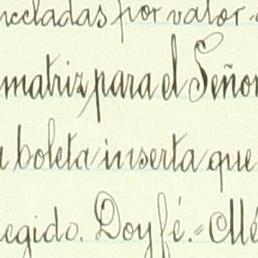 celadas por valor
matriz para el Señor
boleta inserta que
egido. Doy fé.=Mé